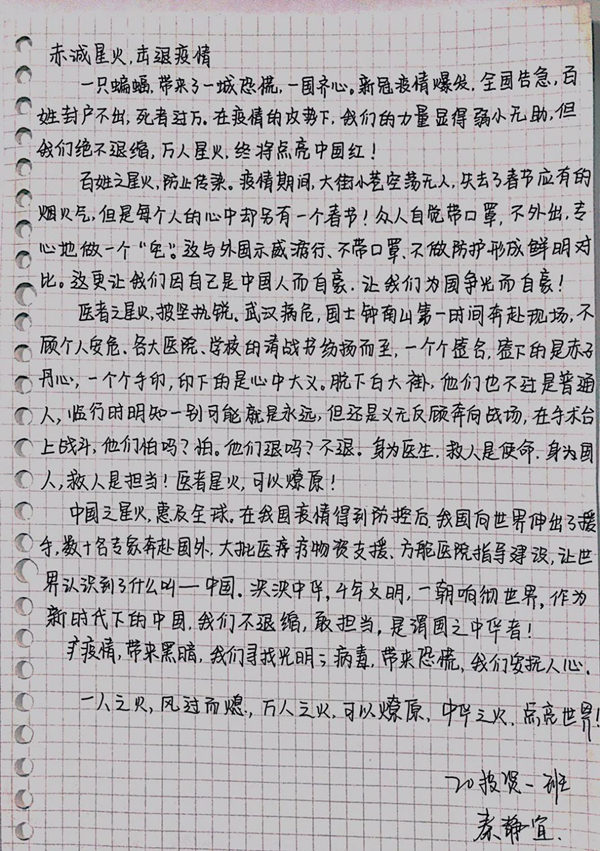 赤诚星火,击退疫情
一只蝙蝠,带来了一城恐慌,一国齐心。新冠疫情爆发,全国告急,百
姓封户不出,死者过万。在疫情的攻势下,我们的力量显得弱小无助,但
我们绝不退缩,万人星火,终将点亮中国红!
百姓之星火,防止传染。疫情期间,大街小巷空荡无人,失去了春节应有的
烟火气,但是每个人的心中却另有一个春节!众人自觉带口罩,不外出,专
心地做一个“宅”。这与外国示威游行、不带口罩、不做防护形成鲜明对
比。这更让我们因自己是中国人而自豪,让我们为国争光而自豪!
医者之星火,披坚执锐。武汉病危,国士钟南山第一时间奔赴现场,不
顾个人安危、各大医院、学校的请战书纷扬而至,一个个签名,签下的是赤子
丹心,一个个手印,印下的是心中大义。脱下白大褂,他们也不过是普通
人,临行时明知一别可能就是永远,但还是义无反顾奔向战场,在手术台
上战斗,他们怕吗?怕。他们退吗?不退。身为医生,救人是使命,身为国
人,救人是担当!医者星火,可以燎原!
中国之星火,惠及全球。在我国疫情得到防控后,我国向世界伸出了援
手,数十名专家奔赴国外,大批医疗药物资支援、方舱医院指导建设,让世
界认识到了什么叫一一中国。泱泱中华,千年文明,一朝响彻世界,作为
新时代下的中国,我们不退缩,敢担当,是谓国之中华者!
疫情,带来黑暗,我们寻找光明;病毒,带来恐慌,我们安抚人心。
一人之火,风过而熄,万人之火,可以燎原,中华之火,点亮世界!
20投资一班
秦静宜